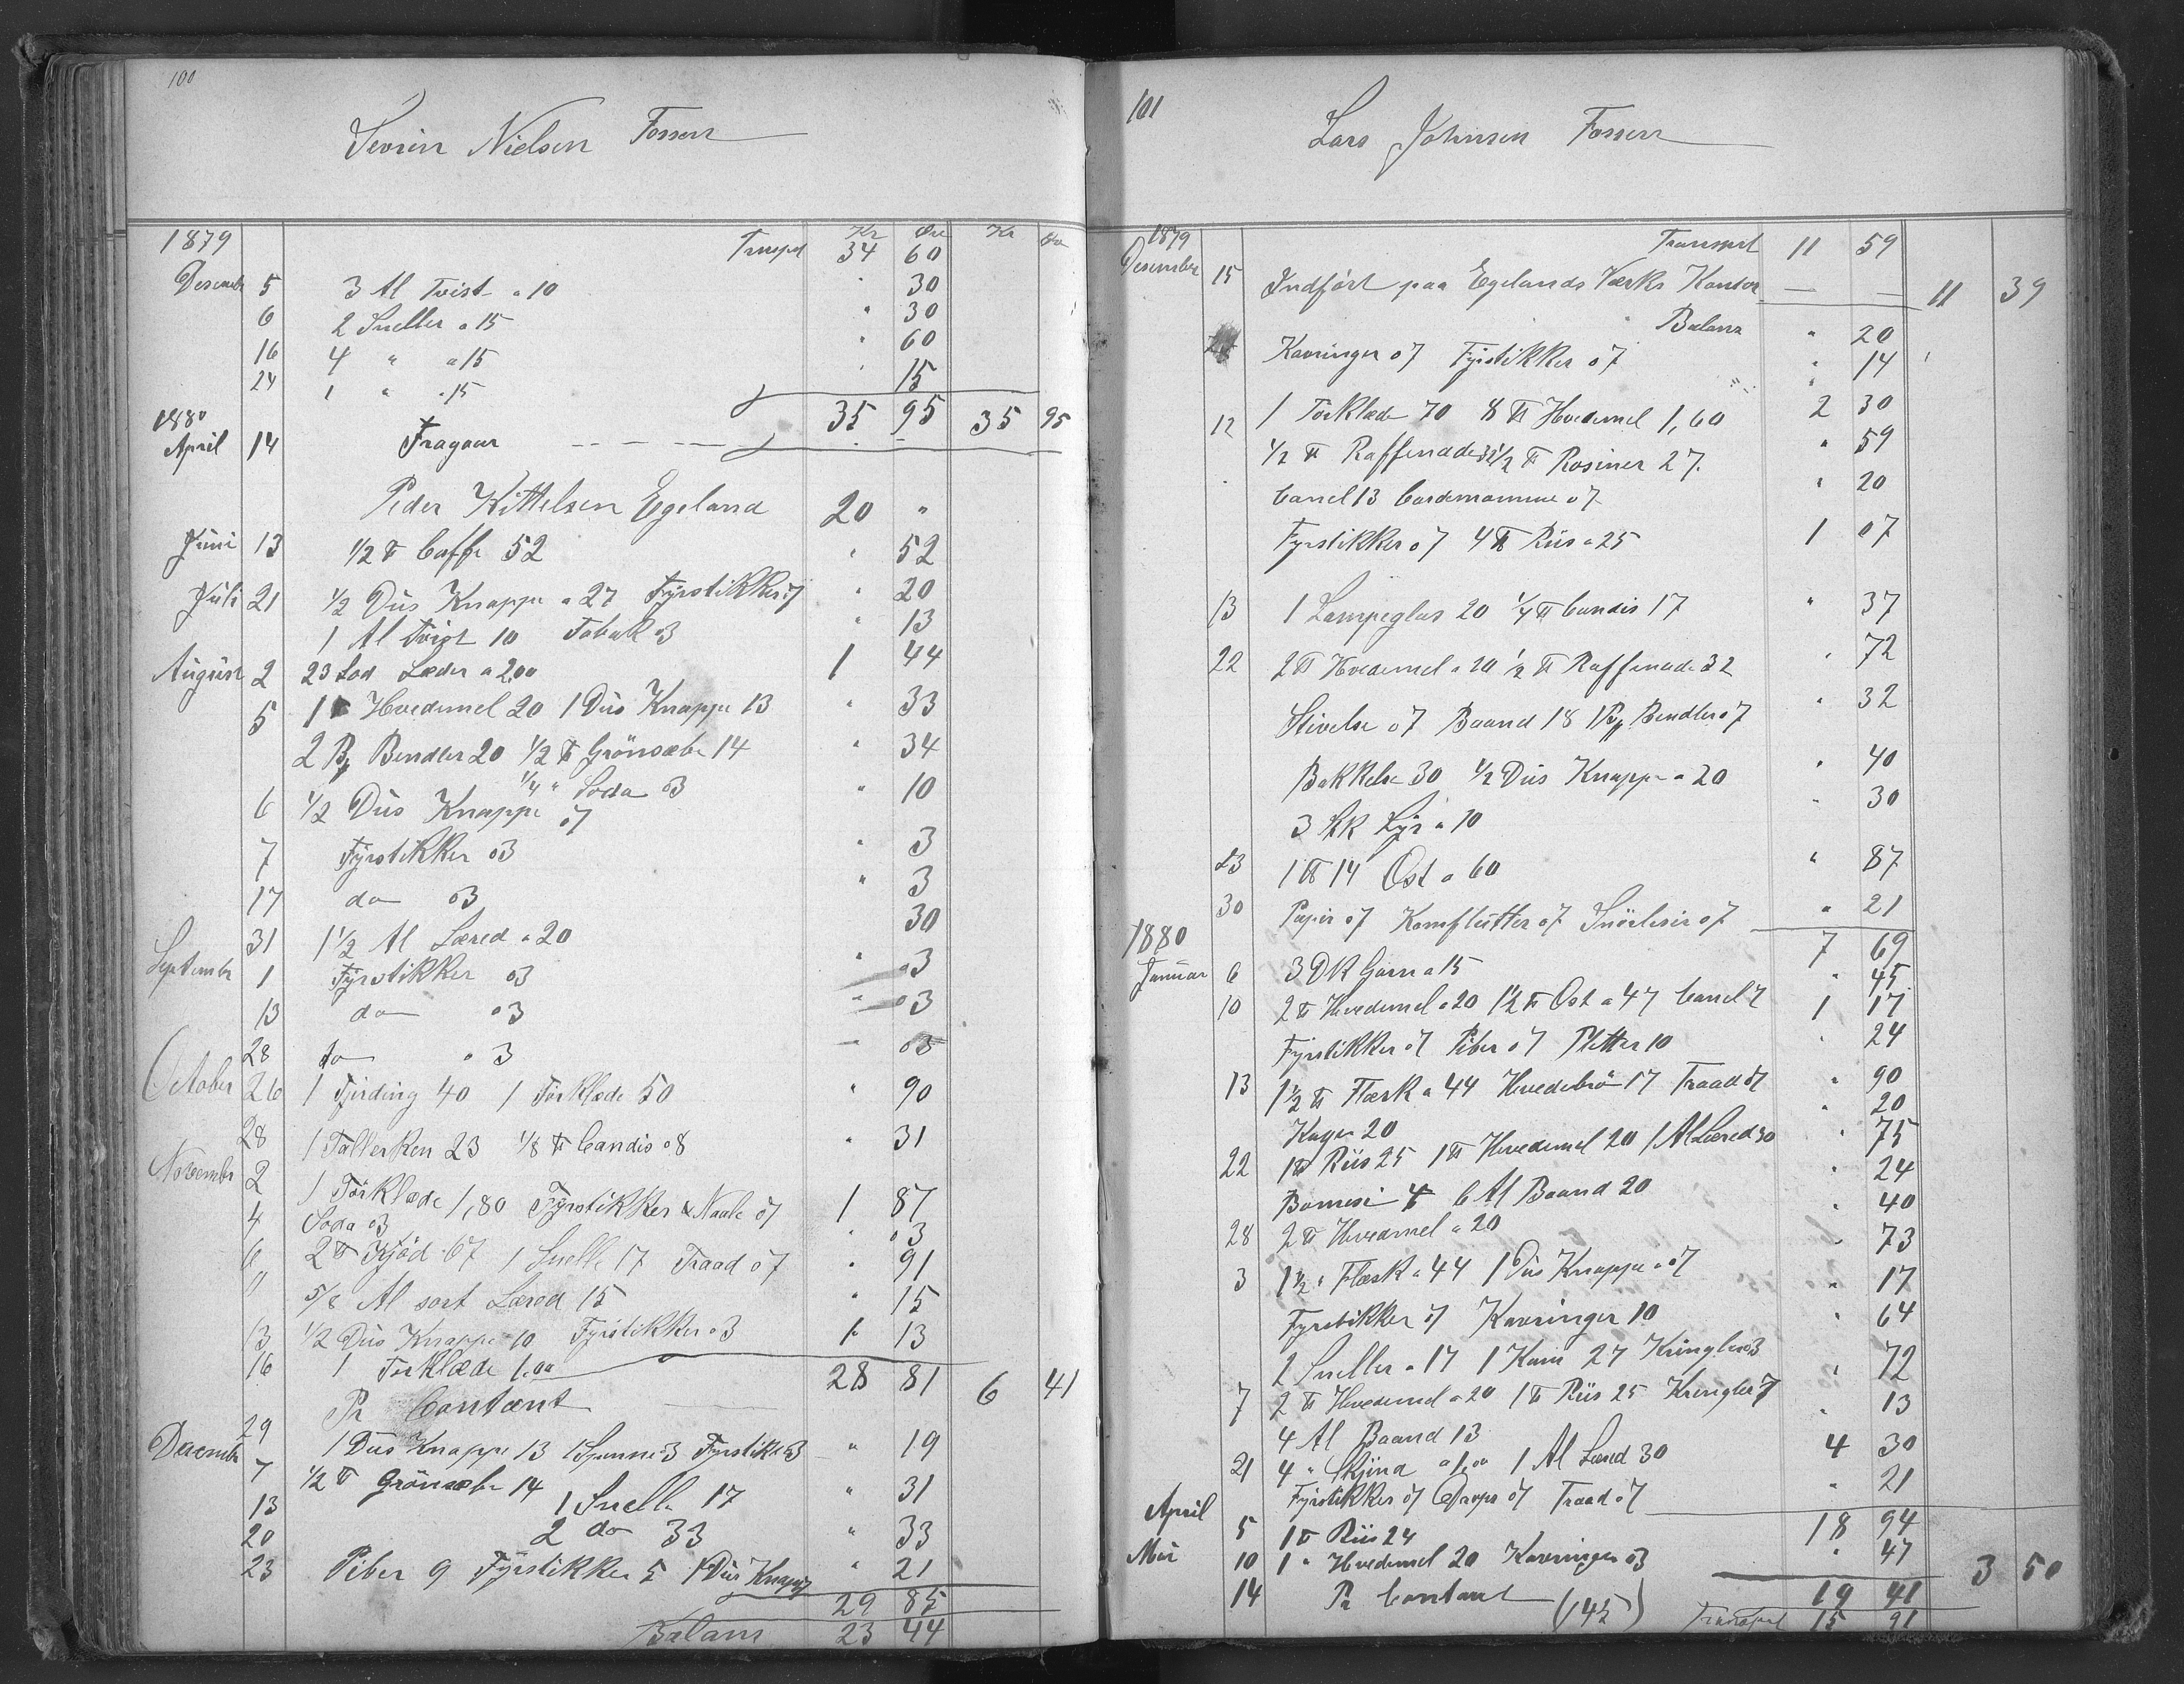 100
Sevrin Nielsen Fossen
1879 Kr Øre Kr Øre
Transpd 34 60
Desember 5 3 Al Tvist a 10 " 30
6 2 Sneller a 15 " 30
16 4 " a 15 " 60
24 1 " a 15 " 15
35 95 35 95
1880
April 14 Fragaar
Peder Kittelsen Egeland 20 "
Juni 13 1/2 ℔ Caffe 52 " 52
Juli 21 1/2 Dus Knappe a 27 Fyrstikker 07 " 20
1 Al Tvist 10 Tobak 03 " 13
August 2 23 Lod Læder a 2,00 1 44
5 1 ℔ Hvedemel 20 1 Dus Knappe 13 " 33
2 Bendler 20 1/2 ℔ Grönsæbe 14 " 34
1/4 " Soda 03
6 1/2 Dus Knappe 07 " 10
7 Fyrstikker 03 " 3
17 do 03 " 3
31 1 1/2 Al Læred a 20 30
September 1 Fyrstikker 03 " 03
13 do 03 " 03
28 do 03 03
October 26 1 Fjerding 40 1 Törklæde 50 " 90
28 1 Tallerken 23 1/8 ℔ Candis 08 " 31
November 2 1 Törklæde 1,80 Fyrstikker & Naale 07 1 87
4 Soda 03 " 03
6 2 ℔ Kjöd 67 1 Snelle 17 Traad 07 " 91
" 5/8 Al sort Læred 15 " 15
13 1/2 Dus Knappe 10 Fyrstikker 03 " 13
16 1 Törklæde 1,00 1
28 81
29 Pr Contant 6 41
December 7 1 Dus Knappe 13 1 Spænne 3 Fyrstik 03 " 19
13 1/2 ℔ Grönsæbe 14 1 Snelle 17 " 31
20 2 do 33 " 33
23 Piber 9 Fyrstikker 5 1 Dus Knappe 7 " 21
29 85
Balans 23 44
101
Lars Johnsen Fossen
1879 Transport 11 59
Desember 15 Indfört paa Egelands Værks Kontor 11 39
Balans " 20
Kavringer 07 Fyrstikker 07 " 14
12 1 Törklæde 70 8 ℔ Hvedemel 1,60 2 30
1/2 ℔ Raffenade 32 1/2 ℔ Rosiner 27 " 59
Canel 13 Cardemomme 07 " 20
Fyrstikker 07 4 ℔ Riis a 25 1 07
13 1 Lampeglas 20 1/4 ℔ Candis 17 " 37
22 2 ℔ Hvedemel a 20 1/2 ℔ Raffenade 32 " 72
Stivelse 07 Baand 18 1 Bendler 07 " 32
Bakkelse 30 1/2 Dus Knappe a 20 " 40
3 Stk Lys a 10 " 30
23 1 ℔ 14 Ost a 60 " 87
30 Papir 07 Kamflutter 07 Snörlisir 07 " 21
7 69
1880
Januar 6 3 Dk Garn a 15 " 45
10 2 ℔ Hvedemel a 20 1 1/2 ℔ Ost a 47 Canel 7 1 17
Fyrstikker 07 Piber 07 Pletter 10 " 24
13 1 1/2 ℔ Flæsk a 44 Hvedebrö 17 Traad 07 " 90
Kager 20 " 20
22 1 ℔ Riis 25 1 ℔ Hvedemel 20 1 Al Læred 30 " 75
Bomesi 4 6 Al Baand 20 " 24
28 2 ℔ Hvedemel a 20 " 40
3 1 1/2 " Flæsk a 44 1 Dus Knappe a 07 " 73
Fyrstikker 07 Kavringer 10 " 17
2 Sneller a 17 1 Kam 27 Kringler 03 " 64
7 2 ℔ Hvedemel a 20 1 ℔ Riis 25 Kringler 7 " 72
4 Al Baand 13 " 13
21 4 " Skjind a 1,00 1 Al Læred 30 4 30
Fyrstikker 07 Drops 07 Traad 07 " 21
18 94
April 5 1 ℔ Riis 24
Mai 10 1 " Hvedemel 20 Kavringer 03 " 47
19 41
14 Pr Contant (145) 3 50
Transport 15 91